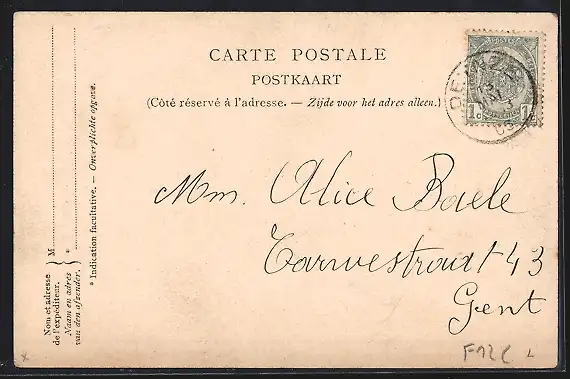 CARTE POSTALE
POSTKAART
(Côté réservé à l'adresse. — Zijde voor het adres alleen.)
1c 1c
Mm. Alice Baele
Tarwestraat 43
Gent
Nom et adresse
de l'expéditeur.
Naam en adres
van den afzender.
M
*
* Indication facultative. — Onverplichte opgave.